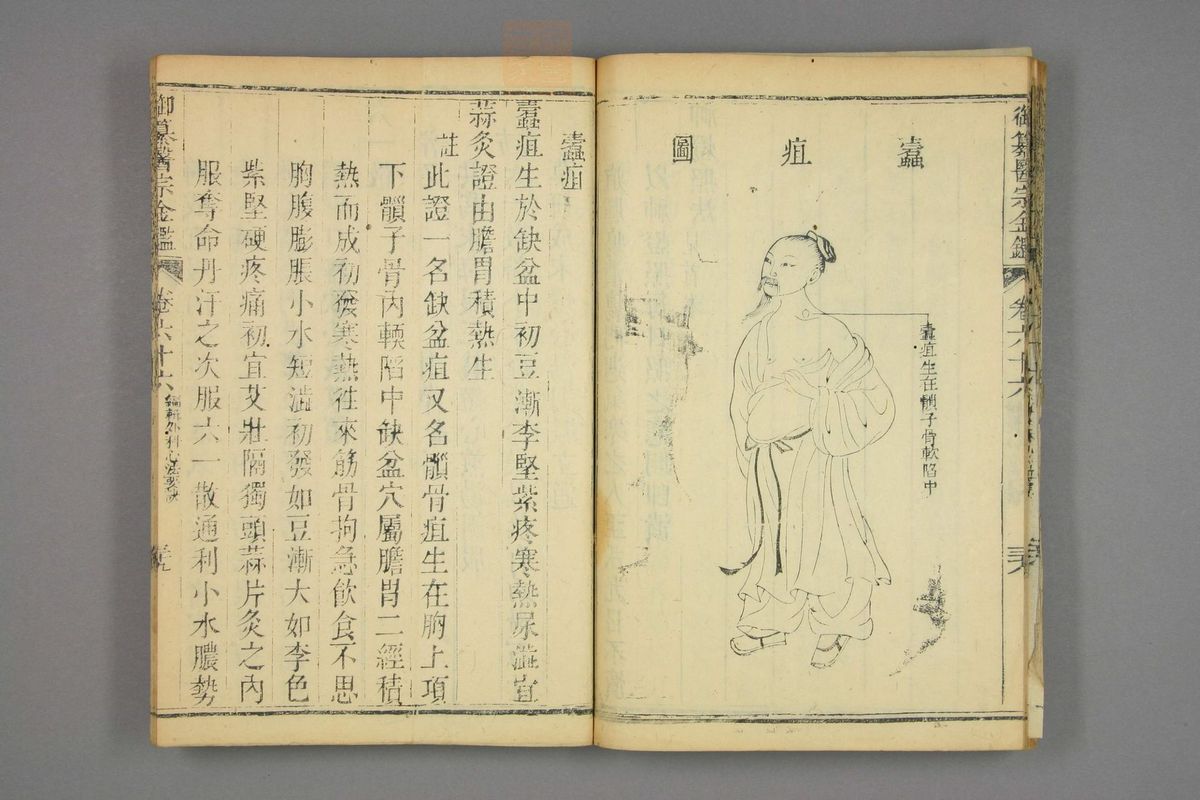 御纂醫宗金鑑 卷六十六
蠹疽圖
蠹疽生在髃子骨軟陷中
蠹疽
蠹疽生於缺盆中初豆漸李堅紫疼寒熱尿澁宜
蒜灸證由膽胃積熱生
註此證一名缺盆疽又名髃骨疽生在胷上項
下髃子骨內軟陷中缺盆穴屬膽胃二經積
熱而成初發寒熱往來筋骨拘急飲食不思
胸腹膨脹小水短澁初發如豆漸大如李色
紫堅硬疼痛初宜艾壯隔獨頭蒜片灸之內
服奪命丹汗之次服六一散通利小水膿勢
御纂醫宗金鑑 卷六十六 編輯外科心法要訣 三九